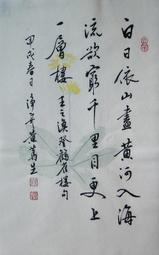 白日依山盡黄河入海
流欲窮千里目更上
一層樓 王之渙登鸛雀樓句
甲戌春